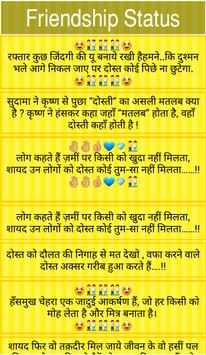 Friendship Status
रफ्तार कुछ जिंदगी की यू बनाये रखी हैहमने..कि दुश्मन
भले आगे निकल जाए पर दोस्त कोई पिछे ना छुटेगा.
सुदामा ने कृष्ण से पुछा “दोस्ती” का असली मतलब क्या
है ? कृष्ण ने हंसकर कहा जहाँ “मतलब” होता है, वहाँ
दोस्ती कहाँ होती है !
लोग कहते हैं ज़मीं पर किसी को खुदा नहीं मिलता,
शायद उन लोगों को दोस्त कोई तुम-सा नहीं मिलता……!!
लोग कहते हैं ज़मीं पर किसी को खुदा नहीं मिलता,
शायद उन लोगों को दोस्त कोई तुम-सा नहीं मिलता……!!
दोस्त को दौलत की निगाह से मत देखो , वफा करने वाले
दोस्त अक्सर गरीब हुआ करते हैं….!!
हँसमुख चेहरा एक जादुई आकर्षण हैं, जो हर किसी को
मोह लेता है और मित्र बनाता है।
शायद फिर वो तक़दीर मिल जाये जीवन के वो हसीं पल